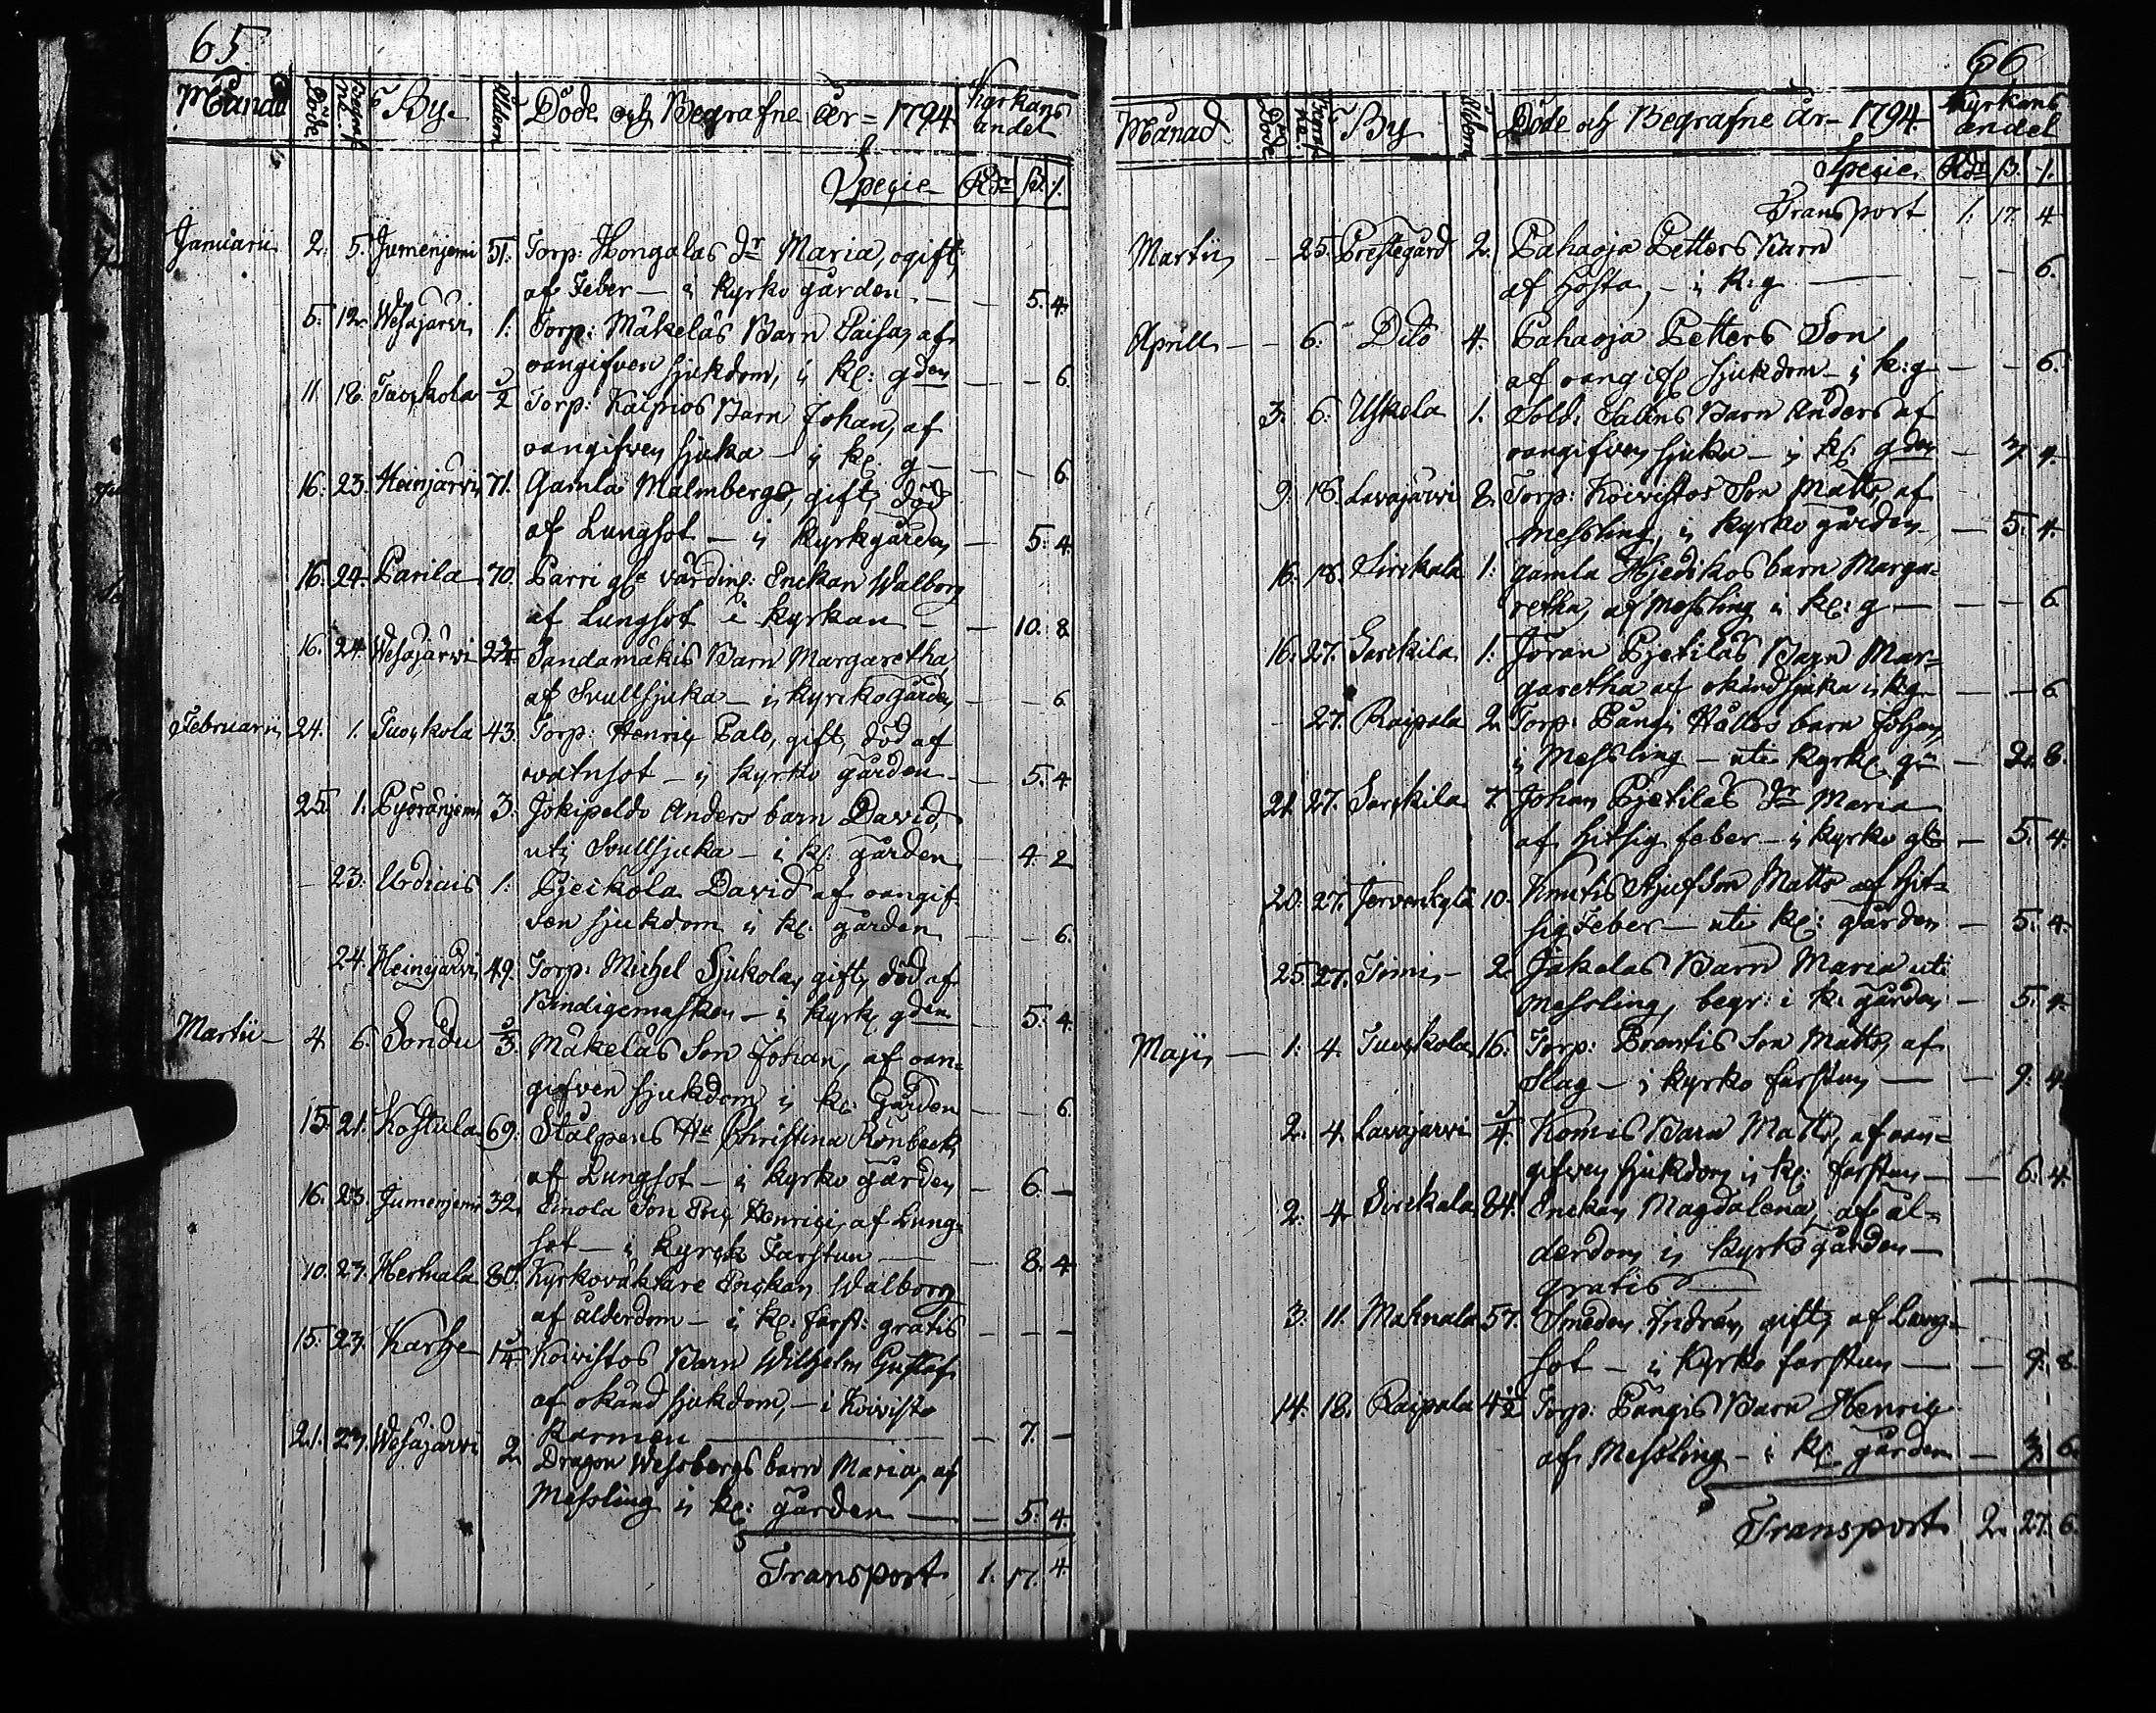 65.
Månad Döde Begrafne By. Ålderen Döde och Begrafne År = 1794 Kyrkans andel
Specie Rdr ß. /.
Januarii 2. 5. Jumenjemi 51. Torp: Hongalas dr Maria, ogift,
af Feber — i Kyrko gården — — 5. 4.
5. 12. Wesajärvi 1. Torp: Mäkeläs Barn Caisa, af
oangifven sjukdom, i K: gden — — 6.
11. 18. Tuockola 3/2 Torp: Kaipios Barn Johan, af
oangifven sjuka — i K: g — — — 6.
16. 23. Heinjärvi 71. Gamla Malmberg, gift, död
af Lungsot — i Kyrkgården — 5. 4.
16. 24. Parila 70. Parri värdin: Enckan Walborg
af Lungsot i Kyrkan — — 10. 8.
16. 24. Wesajärwi Sandamäkis Barn Margaretha
af Svullsjuka — i kyrkogården — — 6.
Februarii 24. 1. Tuockola 43. Torp: Henric Palo, gift, död af
vatnsot — i kyrko gården — — 5. 4
25. 1. Pyöränjemi 3. Jokipeldo Anders barn David,
uti Svullsjuka — i K: gården — 4. 2
— 23. Urdiais 1. Pjeckola David af oangif
ven sjukdom i K: gården — — 6.
24. Heinjärvi 49. Torp: Michel Sjukola, gift, död af
Bindigemasken — i kyrk gden — 5. 4.
Martii — 4. 6. Sondu Mäkeläs Son Johan, af oan=
gifven sjukdom i K: Gården — — 6.
15. 21. Kostula 69. Stålpens Hu Christina Rönbeck
af Lungsot — i kyrko gården — 6. —
16. 23. Jumenjemi 32. Einola Son Eric Henrici, af Lung=
sot — i kyrck Farstun — — 8. 4
10. 23. Herhiala 80. Kyrkovaktare Enckan Walborg
af ålderdom — i K: farst: gratis — — —
15. 23. Karhe Koivistos Barn Wilhelm Gustaf
af okänd sjukdom, — i Koivisto
Karmen — — 7. —
21. 23. Wesajärwi 2. Dragon Wessbergs barn Maria, af
Messling i K: gården — — 5. 4.
Transport 1. 17. 4.
66
Månad Döde Begrafne By Ålderen Döde och Begrafne År — 1794. Kyrkans andel
Specie Rdr ß. /.
Transport 1. 17. 4
Martii — 25. Prestegård 2. Pahaoja Petters Barn
af hosta, — i K: g — — — 6.
Aprill — — 6. Dito 4. Pahaoja Petters Son
af oangif sjukdom — i K: g — — 6.
3. 6. Uskela 1. Sold: Salins Barn Anders af
oangifven sjuka — i K: gden — 4.
9. 18. Lavajärwi 8. Torp: Koivistos Son Matts, af
messling, i kyrko gården — 5. 4.
16. 18. Sirckala 1. gamla Hjedikos barn Marga=
retha, af messling i K: g — — — 6.
16. 27. Sarckila 1. Jöran Pjetiläs Barn Mar=
garetha af okänd sjuka i K g — — 6
— 27. Raipala 2. Torp: Pangi barn Johan,
i Messling — uti Kyrk: g — 6.
21. 27. Sarckila 7. Johan Pjetiläs dr Maria
af hitsig feber — i kyrko — 5. 4.
20. 27. Jervenkylä 10. Knutis Stjufson Matts af Hit=
sig Feber — uti K: gården — 5. 4.
25. 27. Timi — 2. Jakolas Barn Maria uti
Messling, begr: i K: gården — 5. 4.
Maji — 1. 4. Tuockola 16. Torp: Son Matts, af
slag — i kyrko farstun — — 9. 4.
2. 4. Lavajarwi Komis Barn Matts, af oan=
gifven sjukdom i K: farstun — — 6. 4.
2. 4 Sirckala 84. Enckan Magdalena, af ål=
derdom i kyrko gården —
gratis —
3. 11. Mahnala 57. Smeden Indrén gift, af Lung=
sot — i kyrko farstun — — 9. 8.
14. 18. Raipala 4 1/2 Torp: Pangis Barn Henric
af Messling — i K: gården — 6.
Transport 2. 27. 6.